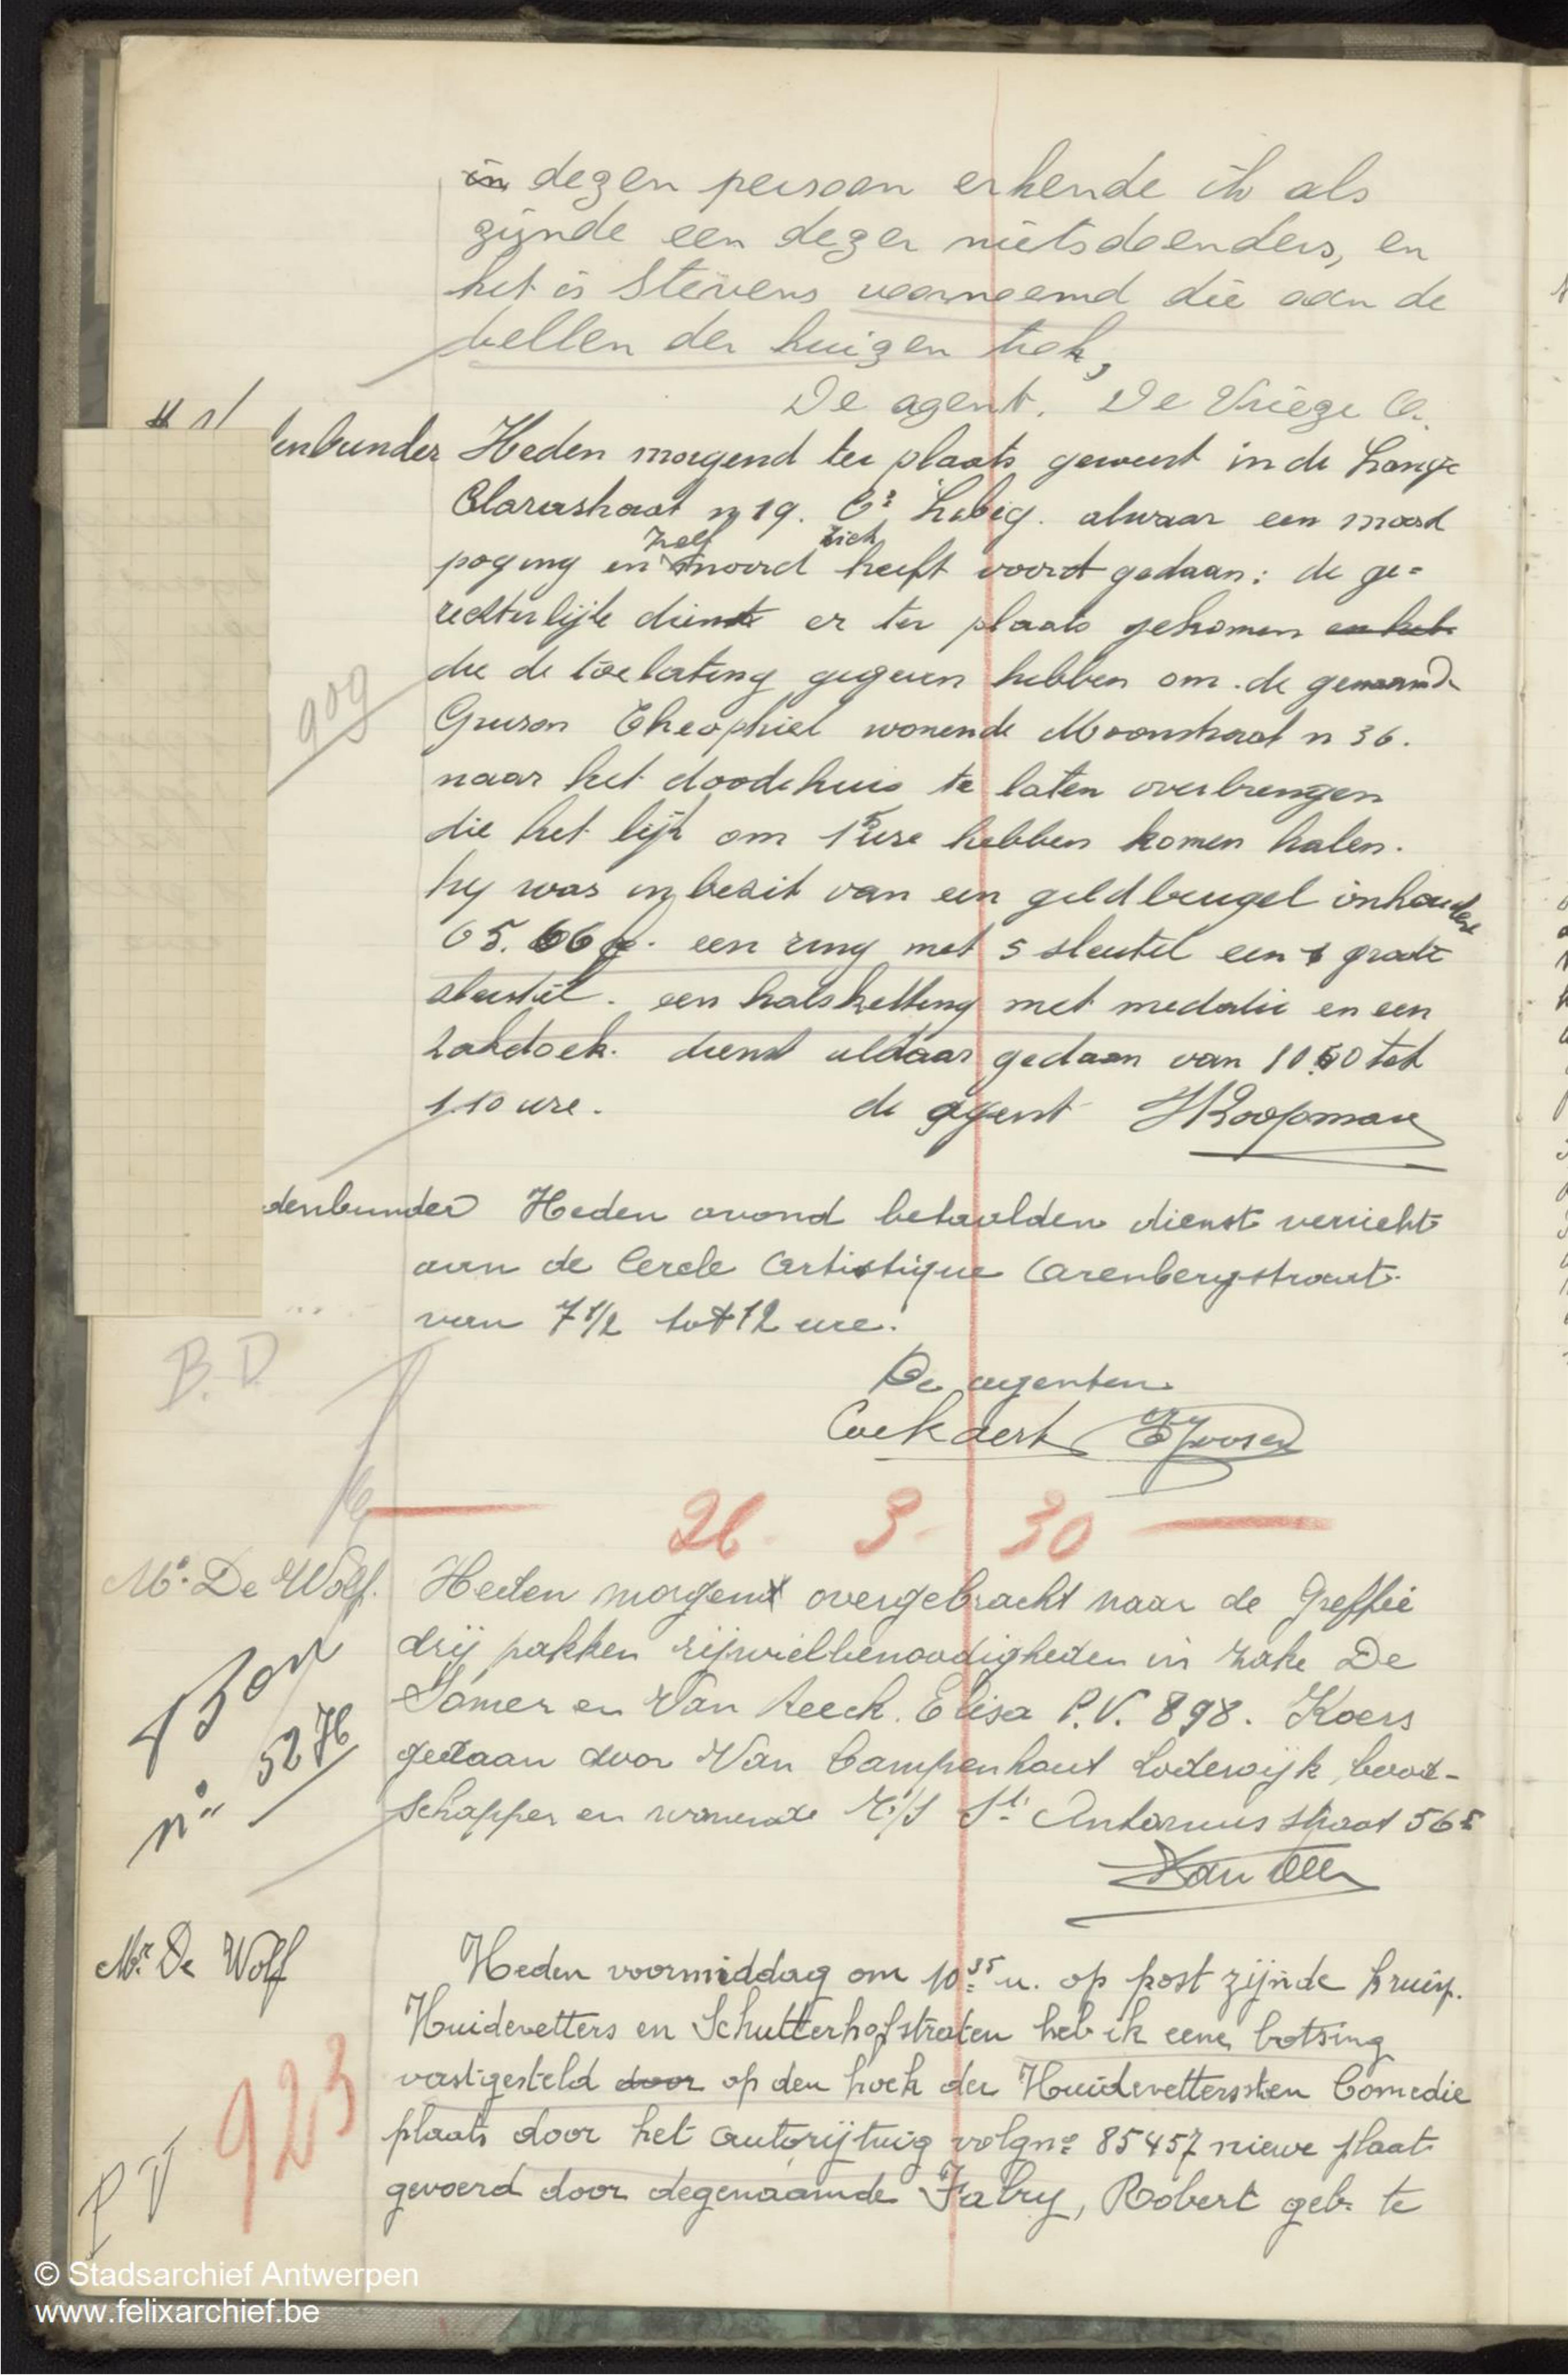 in dezen persoon erkende ik als
zijnde een dezer nietsdoenders, en
het is Stevens voornoemd die aan de
bellen der huizen trok,
De agent. De Vrieze C.
enbunder Heden morgend ter plaats geweest in de Lange
Clarastraat n 19. Cie Liebig. alwaar een moord
poging en zelf moord heeft zich voordt gedaan: de ge=
rechterlijke dienst er ter plaats gekomen en het
die de toelating gegeven hebben om de genaamd
909
Gruson Theophiel wonende Moonstraat n 36.
naar het doodehuis te laten overbrengen
die het lijk om 1 5 ure hebben komen halen.
hy was in bezit van een geldbeugel inhoudend
65.66 fr. een ring met 5 sleutel een groote
sleutel. een halsketting met medalie en een
zakdoek. dienst aldaar gedaan van 10.50 tot
1.10 ure. de agent H Koopman
denbunder Heden avond betaalden dienst verricht
aan de Cercle Artistique Arenbergstraat.
van 7 1/2 tot 12 ure.
B.D.
De agenten
Coekaert E Joosen
26. 3. 30
Mr. De Wolf. Heden morgend overgebracht naar de Greffie
drij pakken rijwielbenoodigheden in zake De
Somer en Van Reeck. Elisa P.V. 898. Koers
Bon
n° 5276
gedaan door Van Campenhout Lodewijk, bood-
schapper en wonende St Antonius straat 56
Mr. De Wolf
Heden voormiddag om 10 35 u. op post zijnde kruisp.
Huidevetters en Schutterhofstraten heb ik eene botsing
vastgesteld door op den hoek der Huidevettersstr en Comedie
plaats door het autorijtuig volgn° 85457 niewe plaat
gevoerd door degenaamde Fabry, Robert geb. te
PV 923
© Stadsarchief Antwerpen
www.felixarchief.be